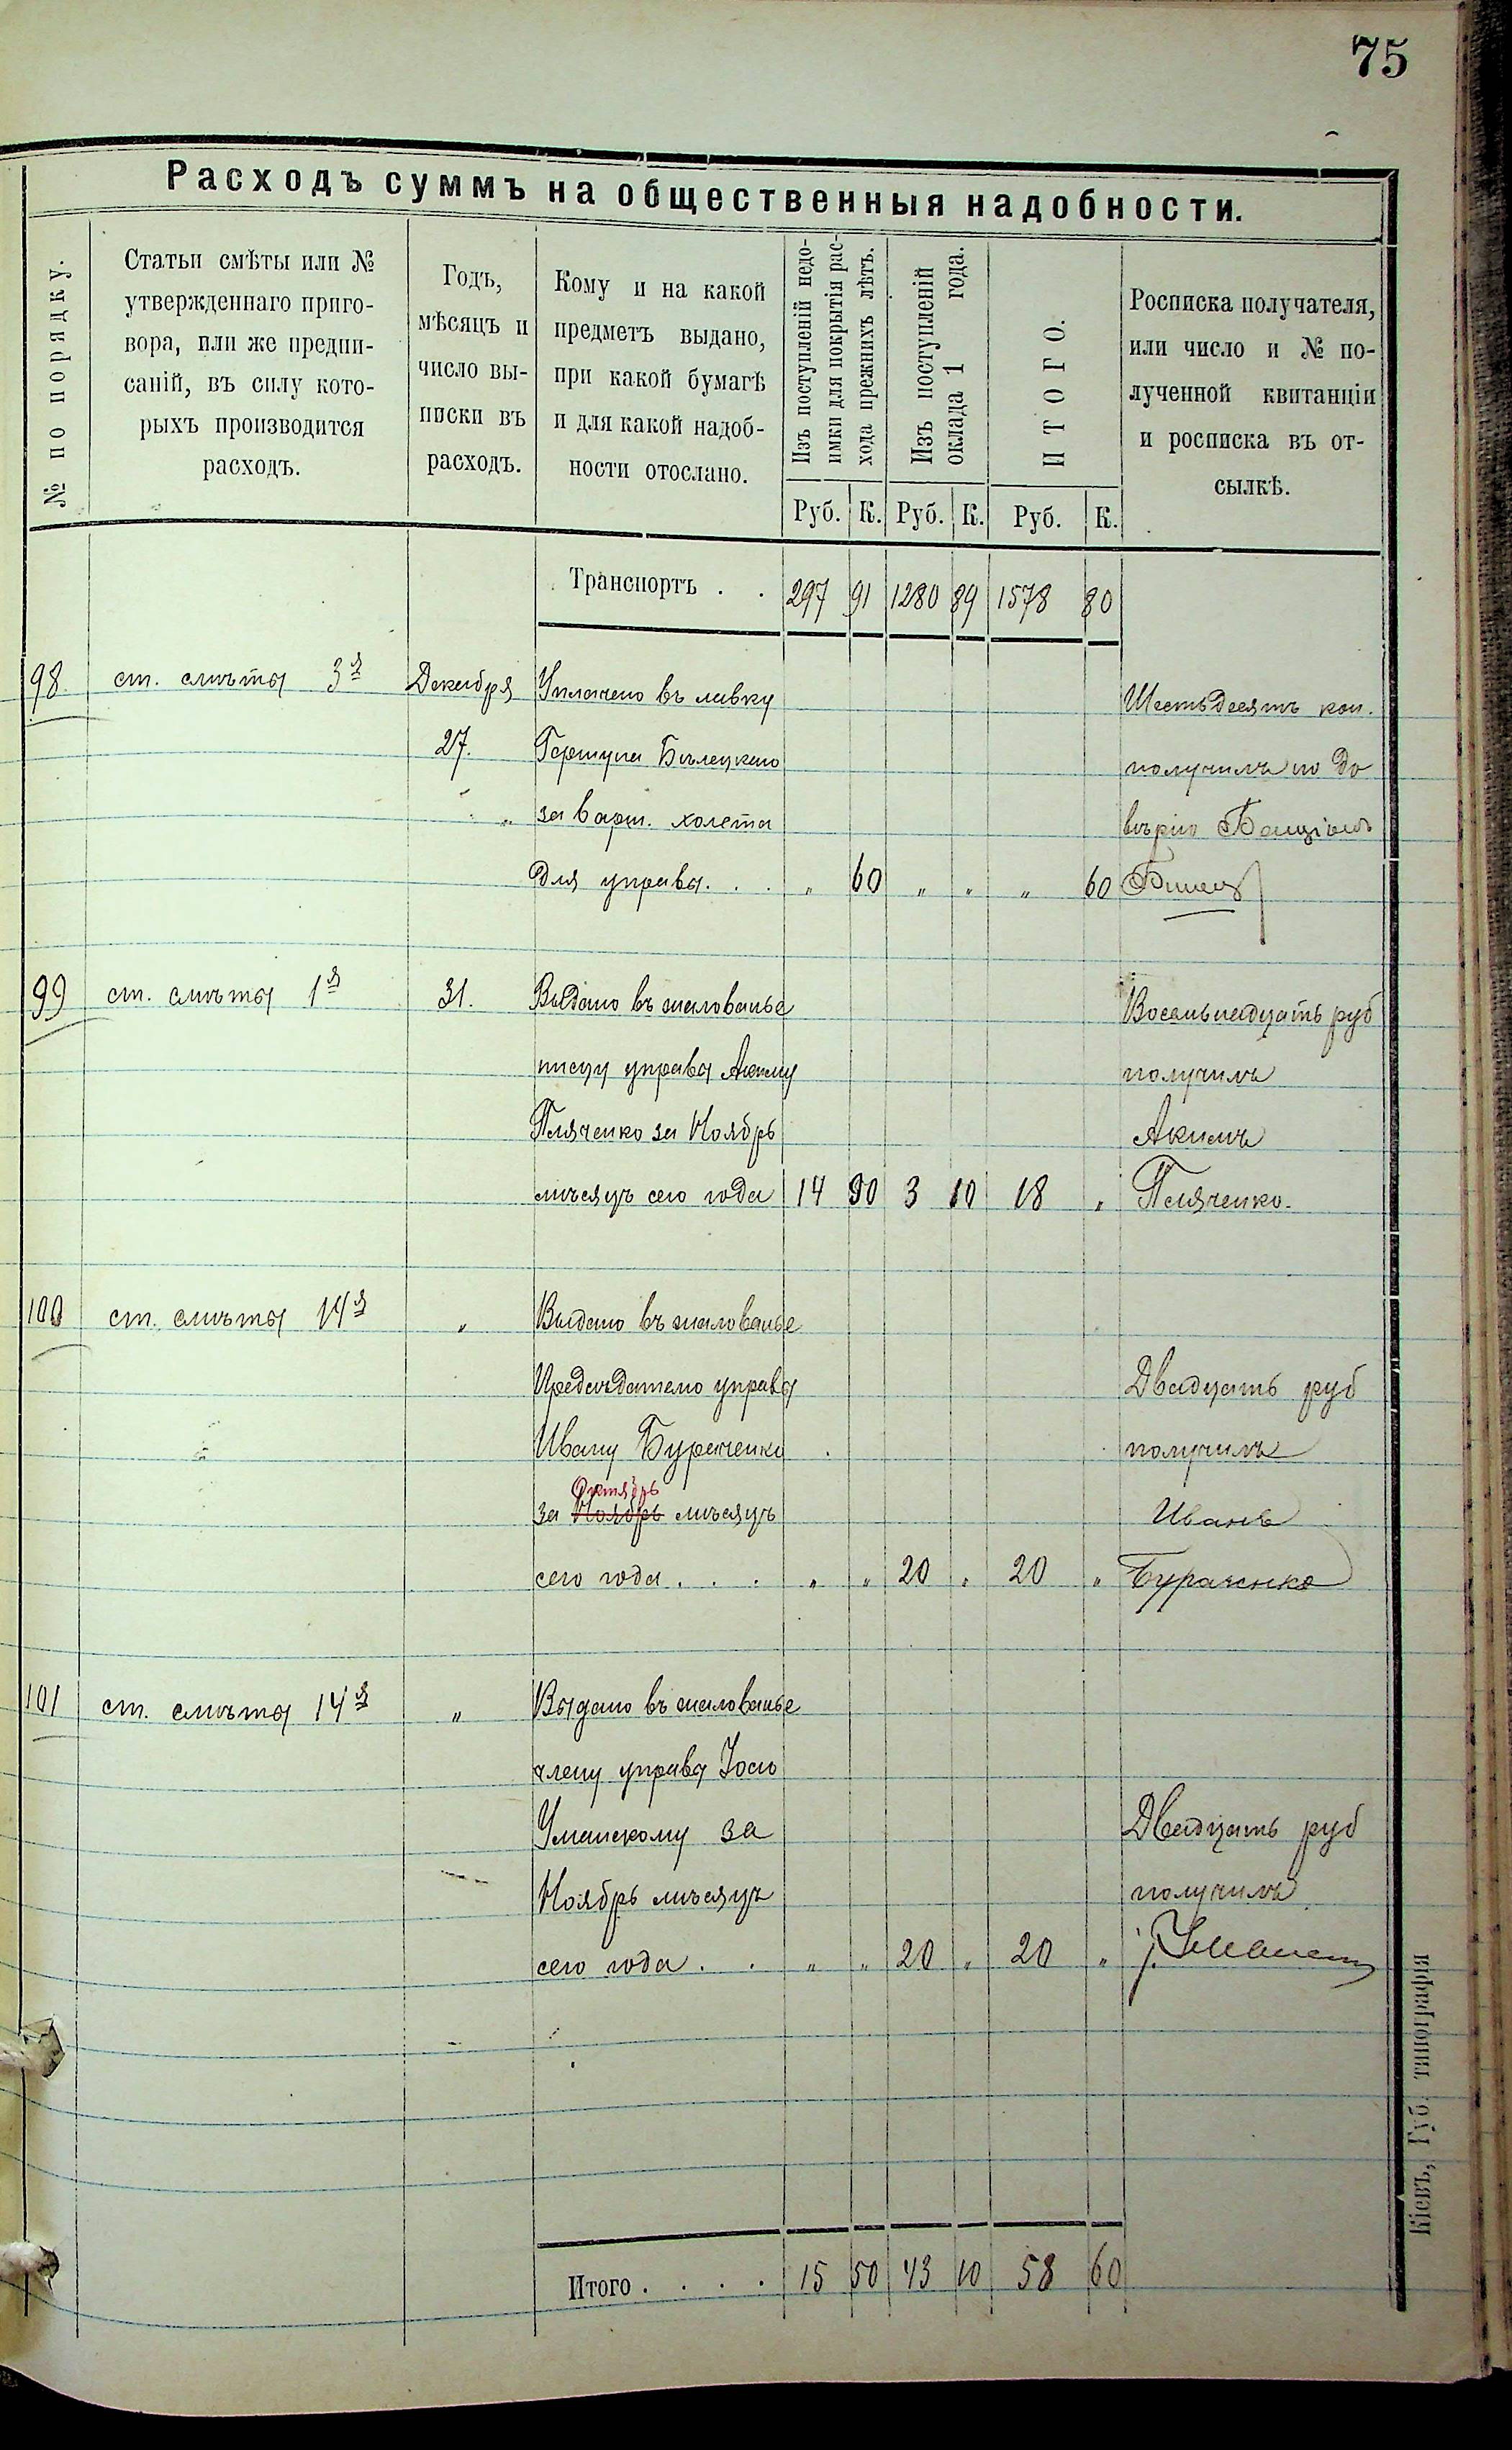 75
Расходъ суммъ на общественныя надобности.
№ по порядку.
Статьи смѣты или №
утвержденнаго приго-
вора, или же предпи-
саній, въ силу кото-
рыхъ производится
расходъ.
Годъ,
мѣсяцъ и
число вы-
писки въ
расходъ.
Кому и на какой
предметъ выдано,
при какой бумагѣ
и для какой надоб-
ности отослано.
Изъ поступленій недо-
имки для покрытія рас-
хода прежнихъ лѣтъ.
Изъ поступленій
оклада 1 года.
ИТОГО.
Росписка получателя,
или число и № по-
лученной квитанціи
и росписка въ от-
сылкѣ.
Руб. К. Руб. К. Руб. К.
Транспортъ . . 297 91 1280 89 1578 80
98 ст. смѣты 3я Декабря Уплачено въ лавку
Шестьдесятъ коп.
27. Бѣлецкаго
получилъ по до
" за
вѣрію
для управы. . . " 60 " " " 60
99 ст. смѣты 1я 31. Выдано въ жалованье
Восемьнадцать руб
писцу управы Акиму
получилъ
Пляченко за Ноябрь
Акимъ
мѣсяцъ сего года 14 90 3 10 18 " Пляченко.
100 ст. смѣты 14я " Выдано въ жалованье
Предсѣдателю управы
Двадцать руб
Ивану Бураченко
получилъ
Октябрь
за Ноябрь мѣсяцъ
Иванъ
сего года . . . " " 20 " 20 " Бураченко
101 ст. смѣты 14я " Выдано въ жалованье
члену управы
Уманскому за
Двадцать руб
Ноябрь мѣсяцъ
получилъ
сего года . . " " 20 " 20 "
Итого . . . . 15 50 43 10 58 60
Кіевъ, Губ. типографія